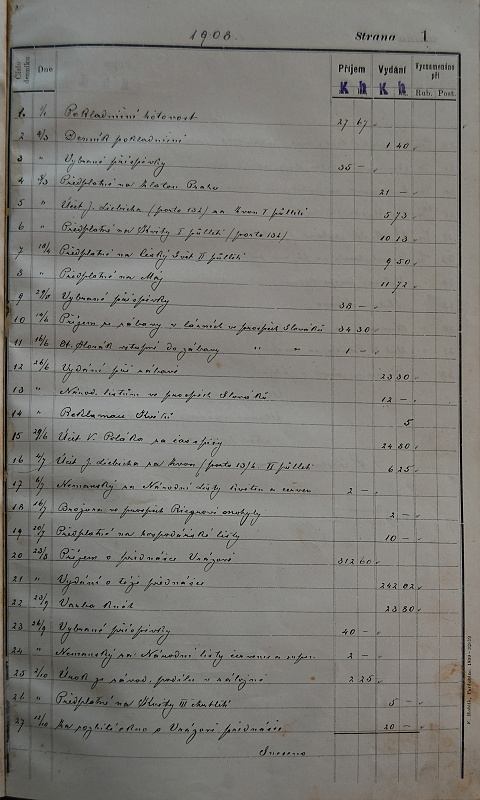 1908.
Strana 1
Číslo denníku Dne Příjem Vydání Vyznamenáno při
K h K h Rub. Post.
1. 1/1 Pokladniční hotovost 27 67
2 2/3 Denník pokladniční 1 40
3 " Vybrané příspěvky 35 –
4 8/3 Předplatné na Praha 21 –
5 " Účet J. Liebicha (porto 13h) za Zvon I půlletí 5 73
6 " Předplatné na Květy I půlletí (porto 13h) 10 13
7 18/4 Předplatné na Český Svět II půlletí 9 50
8 " Předplatné na Máj 11 72
9 Vybrané příspěvky 38 –
10 Příjem ze zábavy v lázních ve prospěch Slováků 34 30
11 16/6 Slovák vstupné do zábavy " " 1 –
12 26/6 Vydání při zábavě 23 30
13 " Národ. listům ve prospěch Slováků 12 –
14 " Reklamace Květů 5
15 29/6 Účet V. Poláka za časopisy 24 80
16 4/7 Účet J. Liebicha za Zvon (porto 13h. II půlletí 6 25
17 6/7 Nemanský za Národní listy květen a červen 2 –
18 16/7 Brožura ve prospěch Riegrovi mohyly 2 –
19 20/7 Předplatné na hospodářské listy 10 –
20 23/8 Příjem o přednášce Vrázově 312 60
21 " Vydání o téže přednášce 242 02
22 23/9 Vazba knih 23 80
23 26/9 Vybrané příspěvky 40 –
24 " Nemanský za Národní listy červenec a srpen 2 –
25 2/10 Úrok ze závod. podílu v záložně 2 25
26 " Předplatné na Květy III čtvrtletí 5 –
27 12/10 Za rozbité okno o Vrázově přednášce 20 –
Sneseno